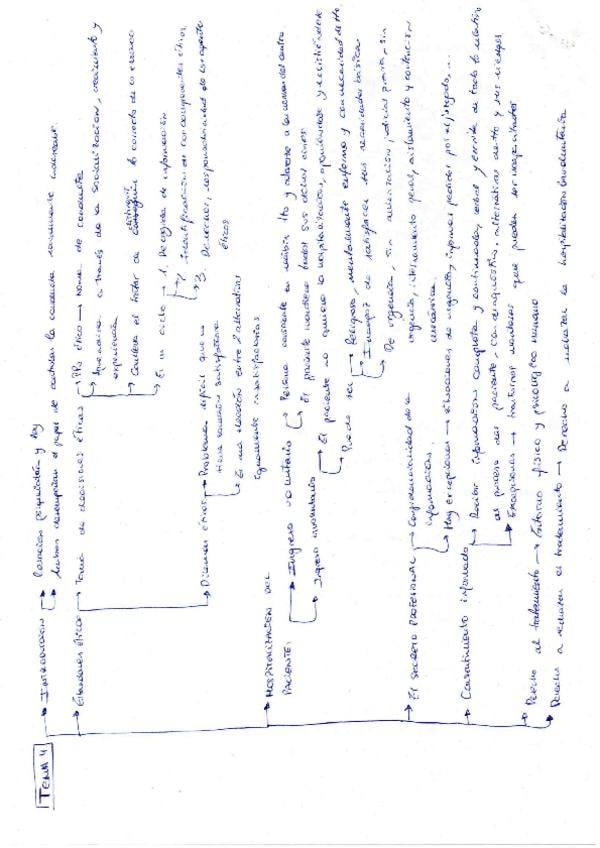 TEMA 4
INTRODUCCIÓN → Relación psiquiatría y ley
→ Ambas desempeñan el papel de controlar la conducta socialmente indeseable.
Estándares éticos → Toma de decisiones éticas → Ppio ético → toma de conducta
→ Aprendidos a través de la socialización, crecimiento y
experiencia
→ Conlleva el tratar de distinguir lo correcto de lo erróneo
→ Es un ciclo → 1. Recogida de información
→ 2. Identificación de los componentes éticos.
→ 3. Derechos, responsabilidad de los agentes
éticos
→ Dilemas éticos → Problema difícil que no
tiene solución satisfactoria
→ Es una elección entre 2 alternativas
igualmente insatisfactorias
HOSPITALIZACIÓN DEL
PACIENTE:
→ Ingreso voluntario → Persona consiente en recibir tto y adherirse a las normas del centro
→ El paciente mantiene todos sus derechos civiles
→ Ingreso involuntario → El paciente no quiere la hospitalización, oponiéndose y resistiéndose
→ Puede ser → Peligroso, mentalmente enfermo y con necesidad de tto.
→ Incapaz de satisfacer sus necesidades básicas
→ De urgencia, sin autorización judicial previa, sin
urgencia, internamiento penal, aislamiento y contención
mecánica.
→ El SECRETO PROFESIONAL → Confidencialidad de la
información.
→ Hay excepciones → situaciones de urgencia, informes pedidos por el juzgado, ...
→ Consentimiento informado → Recibir información completa y continuada, verbal y escrita de todo lo relativo
al proceso del paciente, con diagnóstico, alternativas de tto y sus riesgos
→ Excepciones → trastornos mentales que pueden ser incapacitantes
→ Derecho al tratamiento → Entorno físico y psicológico humano
→ Derecho a rechazar el tratamiento → Derecho a rechazar la hospitalización involuntaria